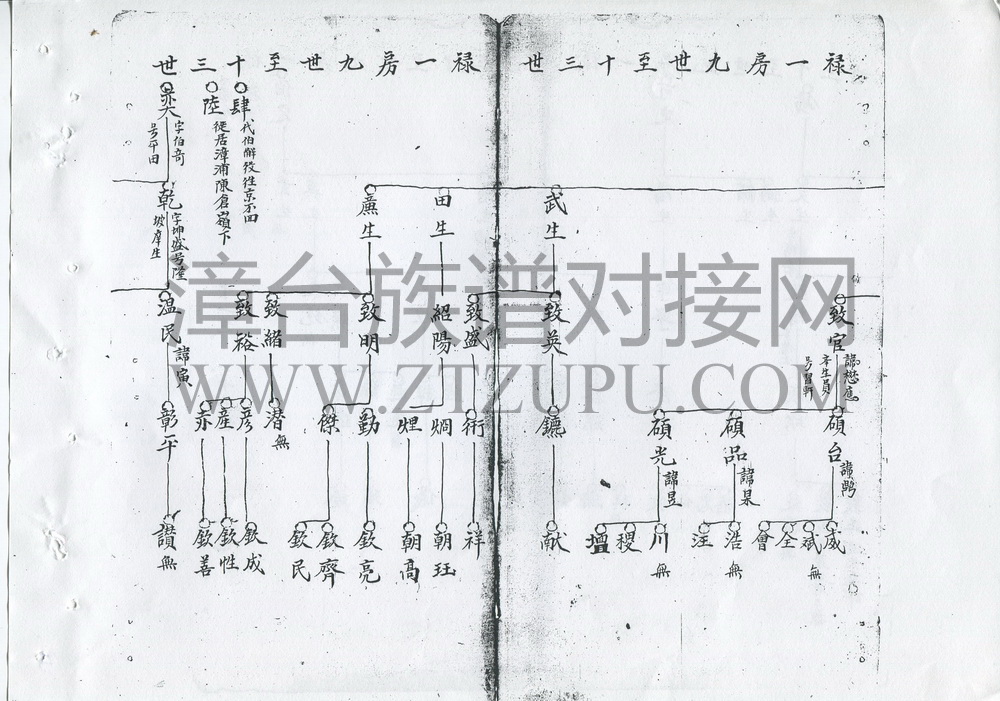 禄一房九世至十三世
致官
諱懋惠
本生員
号習軒
碩台
諱鸊
碩品
諱杲
碩光
諱昱
威
斌 無
全
會
浩 無
汪
川 無
稷
壇
武生
致英
鑣
献
禄一房九世至十三世
致盛
術
祥
田生
紹陽
朝珏
朝高
廉生
致明
勤
傑
欽亮
欽齊
欽民
致縉
潛 無
致裕
彦
產
赤
欽成
欽性
欽善
肆
代伯解役往京不回
陸
徙居漳浦陳倉嶺下
奭
字伯奇
号平田
乾
字坤盛号陸
坡庠生
温民
諱寅
彰平
讚 無
漳台族谱对接网
WWW.ZTZUPU.COM